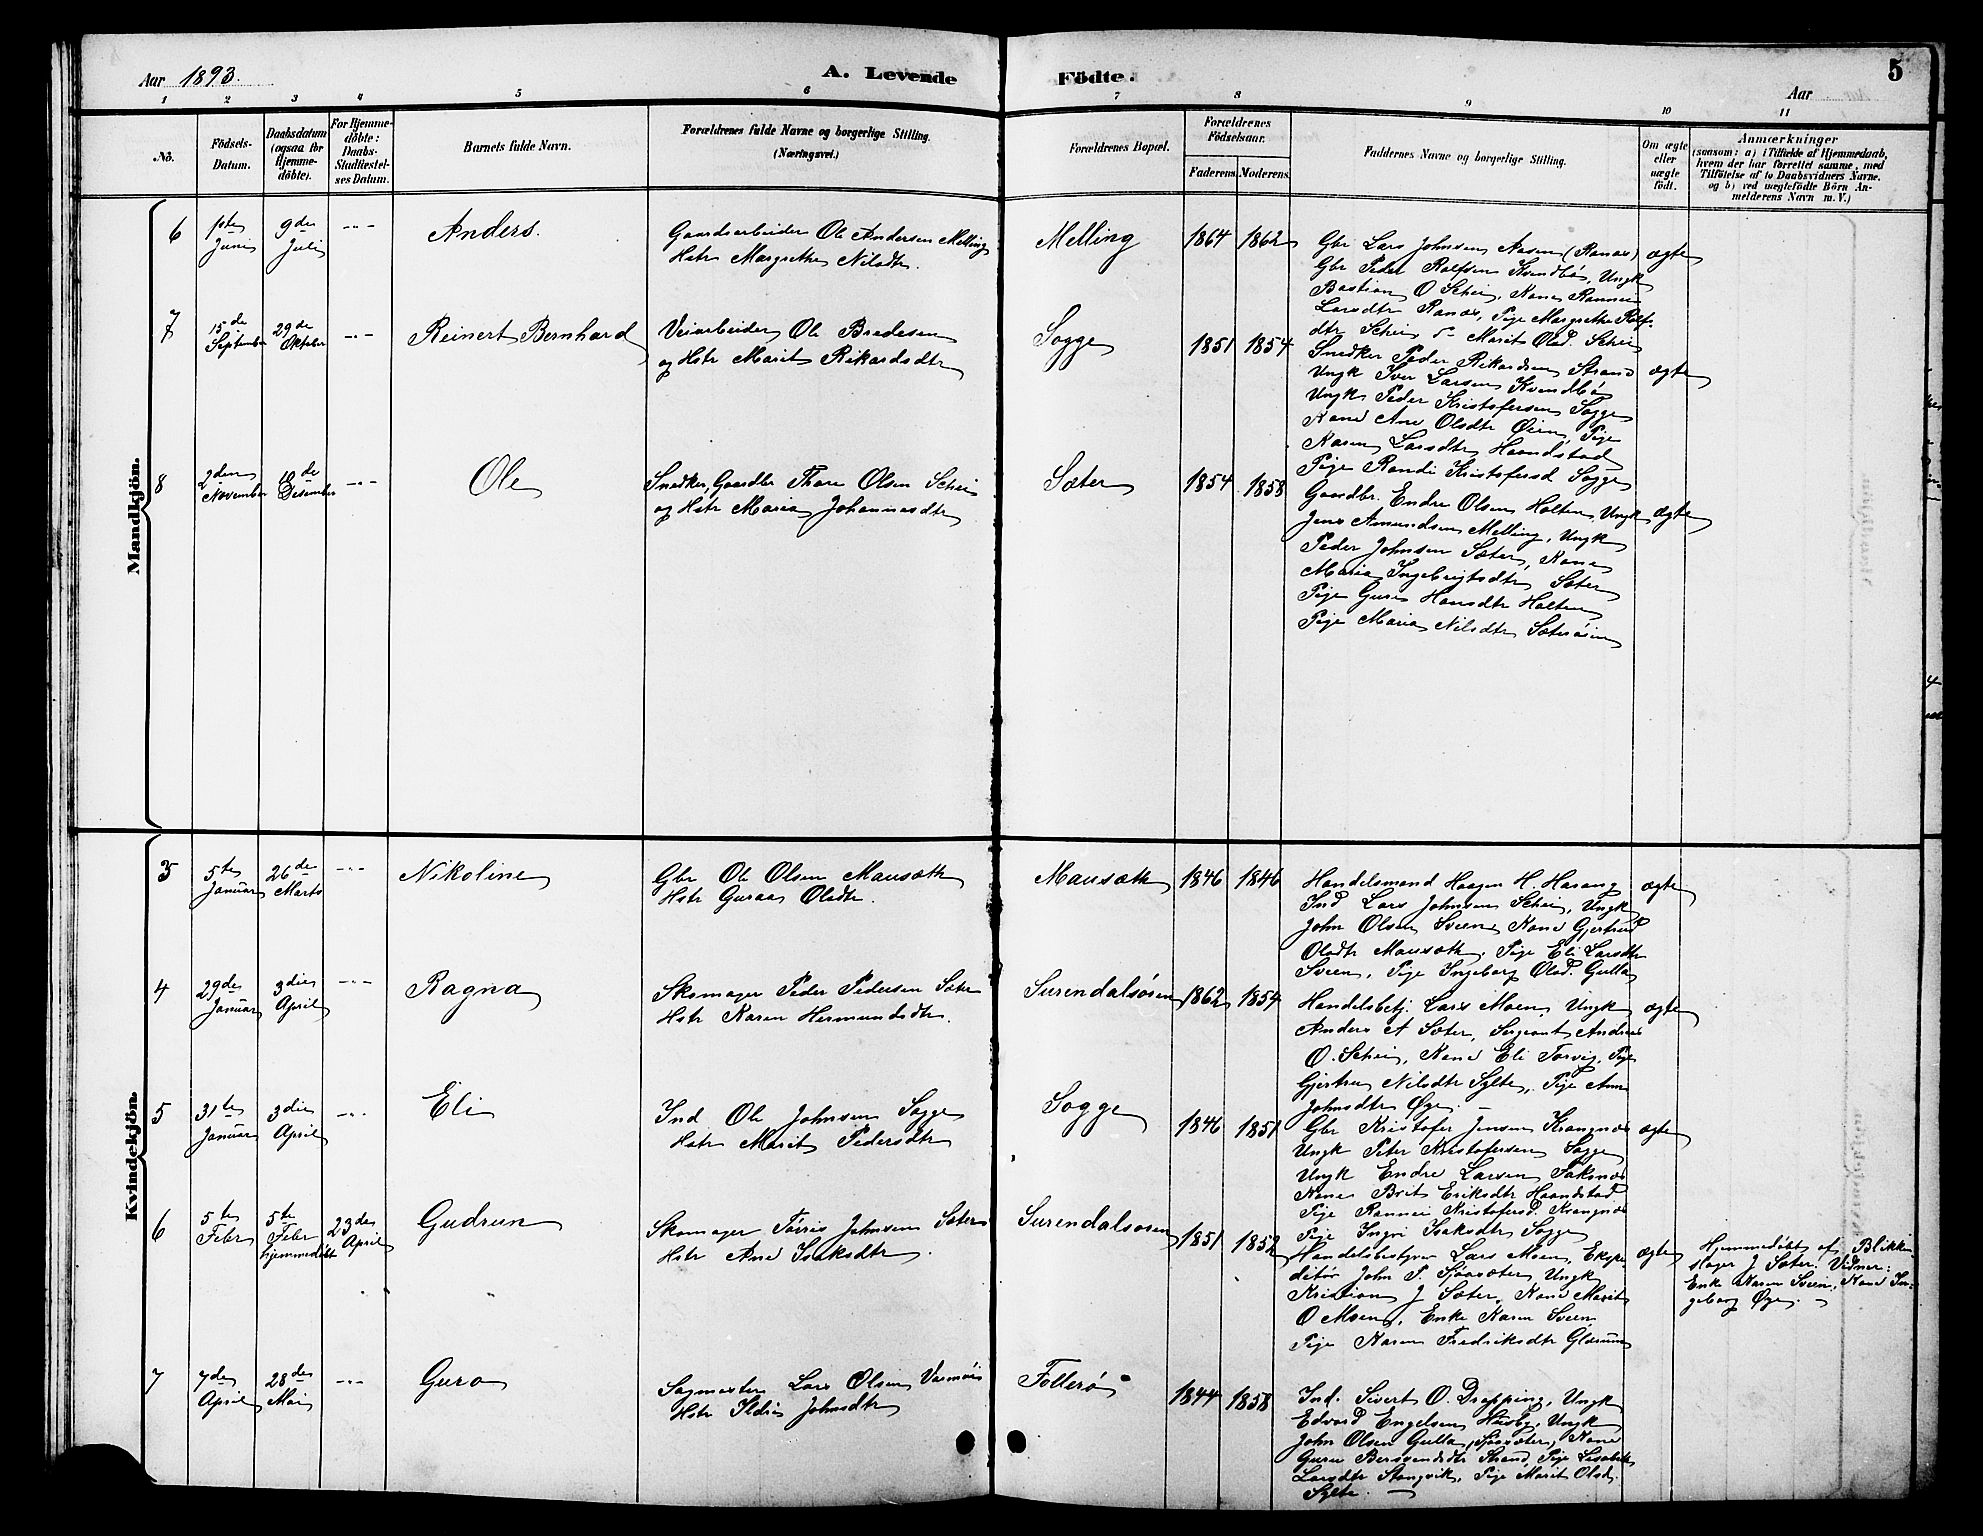 Aar 1893.
A. Levende
Födte.
5
Aar
1 2 3 4 5 6 7 8 9 10 11
No.
Födsels-
Datum.
Daabsdatum
(ogsaa for
Hjemme-
döbte).
For Hjemme-
döbte:
Daabs-
Stadfæstel-
ses Datum.
Barnets fulde Navn.
Forældrenes fulde Navne og borgerlige Stilling.
(Næringsvei.)
Forældrenes Bopæl.
Forældrenes
Födselsaar.
Faderens.
Moderens.
Faddernes Navne og borgerlige Stilling.
Om ægte
eller
uægte
födt.
Anmærkninger
(saasom: a) i Tilfælde af Hjemmedaab,
hvem der har forrettet samme, med
Tilföielse af to Daabsvidners Navne.
og b) ved uægtefödte Börn An-
melderens Navn m. V.)
Mandkjön.
6
1ste
Juni
9de
Juli
-"-
Anders.
Gaardsarbeider Ole Andersen Melling
Hstr Margrethe Nilsdtr.
Melling
1864
1862
Gbr Lars Johnsen Aasen (Ranæs)
Gbr Peder Rolfsen Kvendbö, Ungk
Bastian O Schei, Kone Rannei
Larsdtr Ranæs, Pige Margrethe Rolf-
dtr Schei Marit Olsd. Schei
ægte
7
15de
September
29de
Oktober
-"-
Reinert Bernhard
Veiarbeider Ole Bredesen
og Hstr Marit Rikardsdtr
Sogge
1851
1854
Snedker Peder Rikardsen Strand
Ungk Iver Larsen Kvendbö
Ungk Peder Kristofersen Sogge
Kone Ane Olsdtr Öien, Pige
Karen Larsdtr Haandstad
Pige Randi Kristofersd Sogge
ægte
8
2den
November
Desember
-"-
Ole
Snedker, Gaardbr Thore Olsen Schei
og Hstr Maria Johannesdtr
Sæter
1854
1858
Gaardbr. Endre Olsen Holten, Ungk
Jens Amundsen Melling, Ungk
Peder Johnsen Sæter, Kone
Maria Ingebrigtsdtr Sæter
Pige Guri Hansdtr Holten
Pige Maria Nilsdtr Sæterøien
ægte
Kvindekjön.
3
5te
Januar
26de
Marts
-"-
Nikoline
Gbr Ole Olsen Mausæth
Hstr Guraa Olsdtr.
Mausæth
1846
1846
Handelsmand Haagen H. Harang
Ind Lars Johnsen Schei, Ungk
John Olsen Sveen, Kone Gjertrud
Olsdtr Mausæth, Pige Eli Larsdtr
Sveen, Pige Ingeborg Olsd. Gulla
ægte
4
29de
Januar
3die
April
-"-
Ragna
Skomager Peder Pedersen Sæter
Hstr Karen Hermundsdtr.
Surendalsøren
1862
1854
Handelsbetj. Lars Moen, Ungk
Anders A Sæter, Sergeant Andreas
O. Schei, Kone Eli Torvig, Pige
Gjertru Nilsdtr Sylte, Pige Ane
Johnsdtr Øye. -
ægte
5
31te
Januar
3die
April
-"-
Eli
Ind Ole Johnsen Sogge
Hstr Marit Pedersdtr
Sogge
1846
1851
Gbr Kristofer Jensen Krangnæs
Ungk Peter Kristofersen Sogge
Ungk Endre Larsen Saksnæs
Kone Brit Eriksdtr Haandstad
Pige Rannei Kristofersd. Krangnæs
Pige Ingri Isaksdtr Sogge
ægte
6
5te
Febr
5te
Febr
hjemmedöbt
23de
April
Gudrun
Skomager Töris Johnsen Sæter
Hstr Ane Isaksdtr.
Surendalsøren
1851
1852
Handelsbestyrer Lars Moen, Ekspe-
ditör John P. Sjöasæter, Ungk
Kristian J Sæter, Kone Marit
O Moen, Enke Karen Sveen
Pige Karen Fredriksdtr Glærum
ægte
Hjemmedöbt af Blikken-
slager J Sæter. Vidner:
Enke Karen Sveen, Kone In-
geborg Øye. -
7
7de
April
28de
Mai
-"-
Guro
Sagmester Lars Olsen
Hstr Ildri Johnsdtr
Follerø
1844
1858
Ind. Sivert O. Drøpping, Ungk
Edvard Engelsen Husby, Ungk
John Olsen Gulla (Sjöasæter) Kone
Guru Bersvendsdtr Strand, Pige Lisabeth
Larsdtr Stangvik, Pige Marit Olsd.
Sylte. -